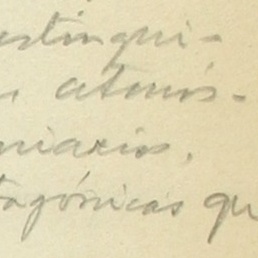 estingui-
atomís-
niarios.
tagónicas qu